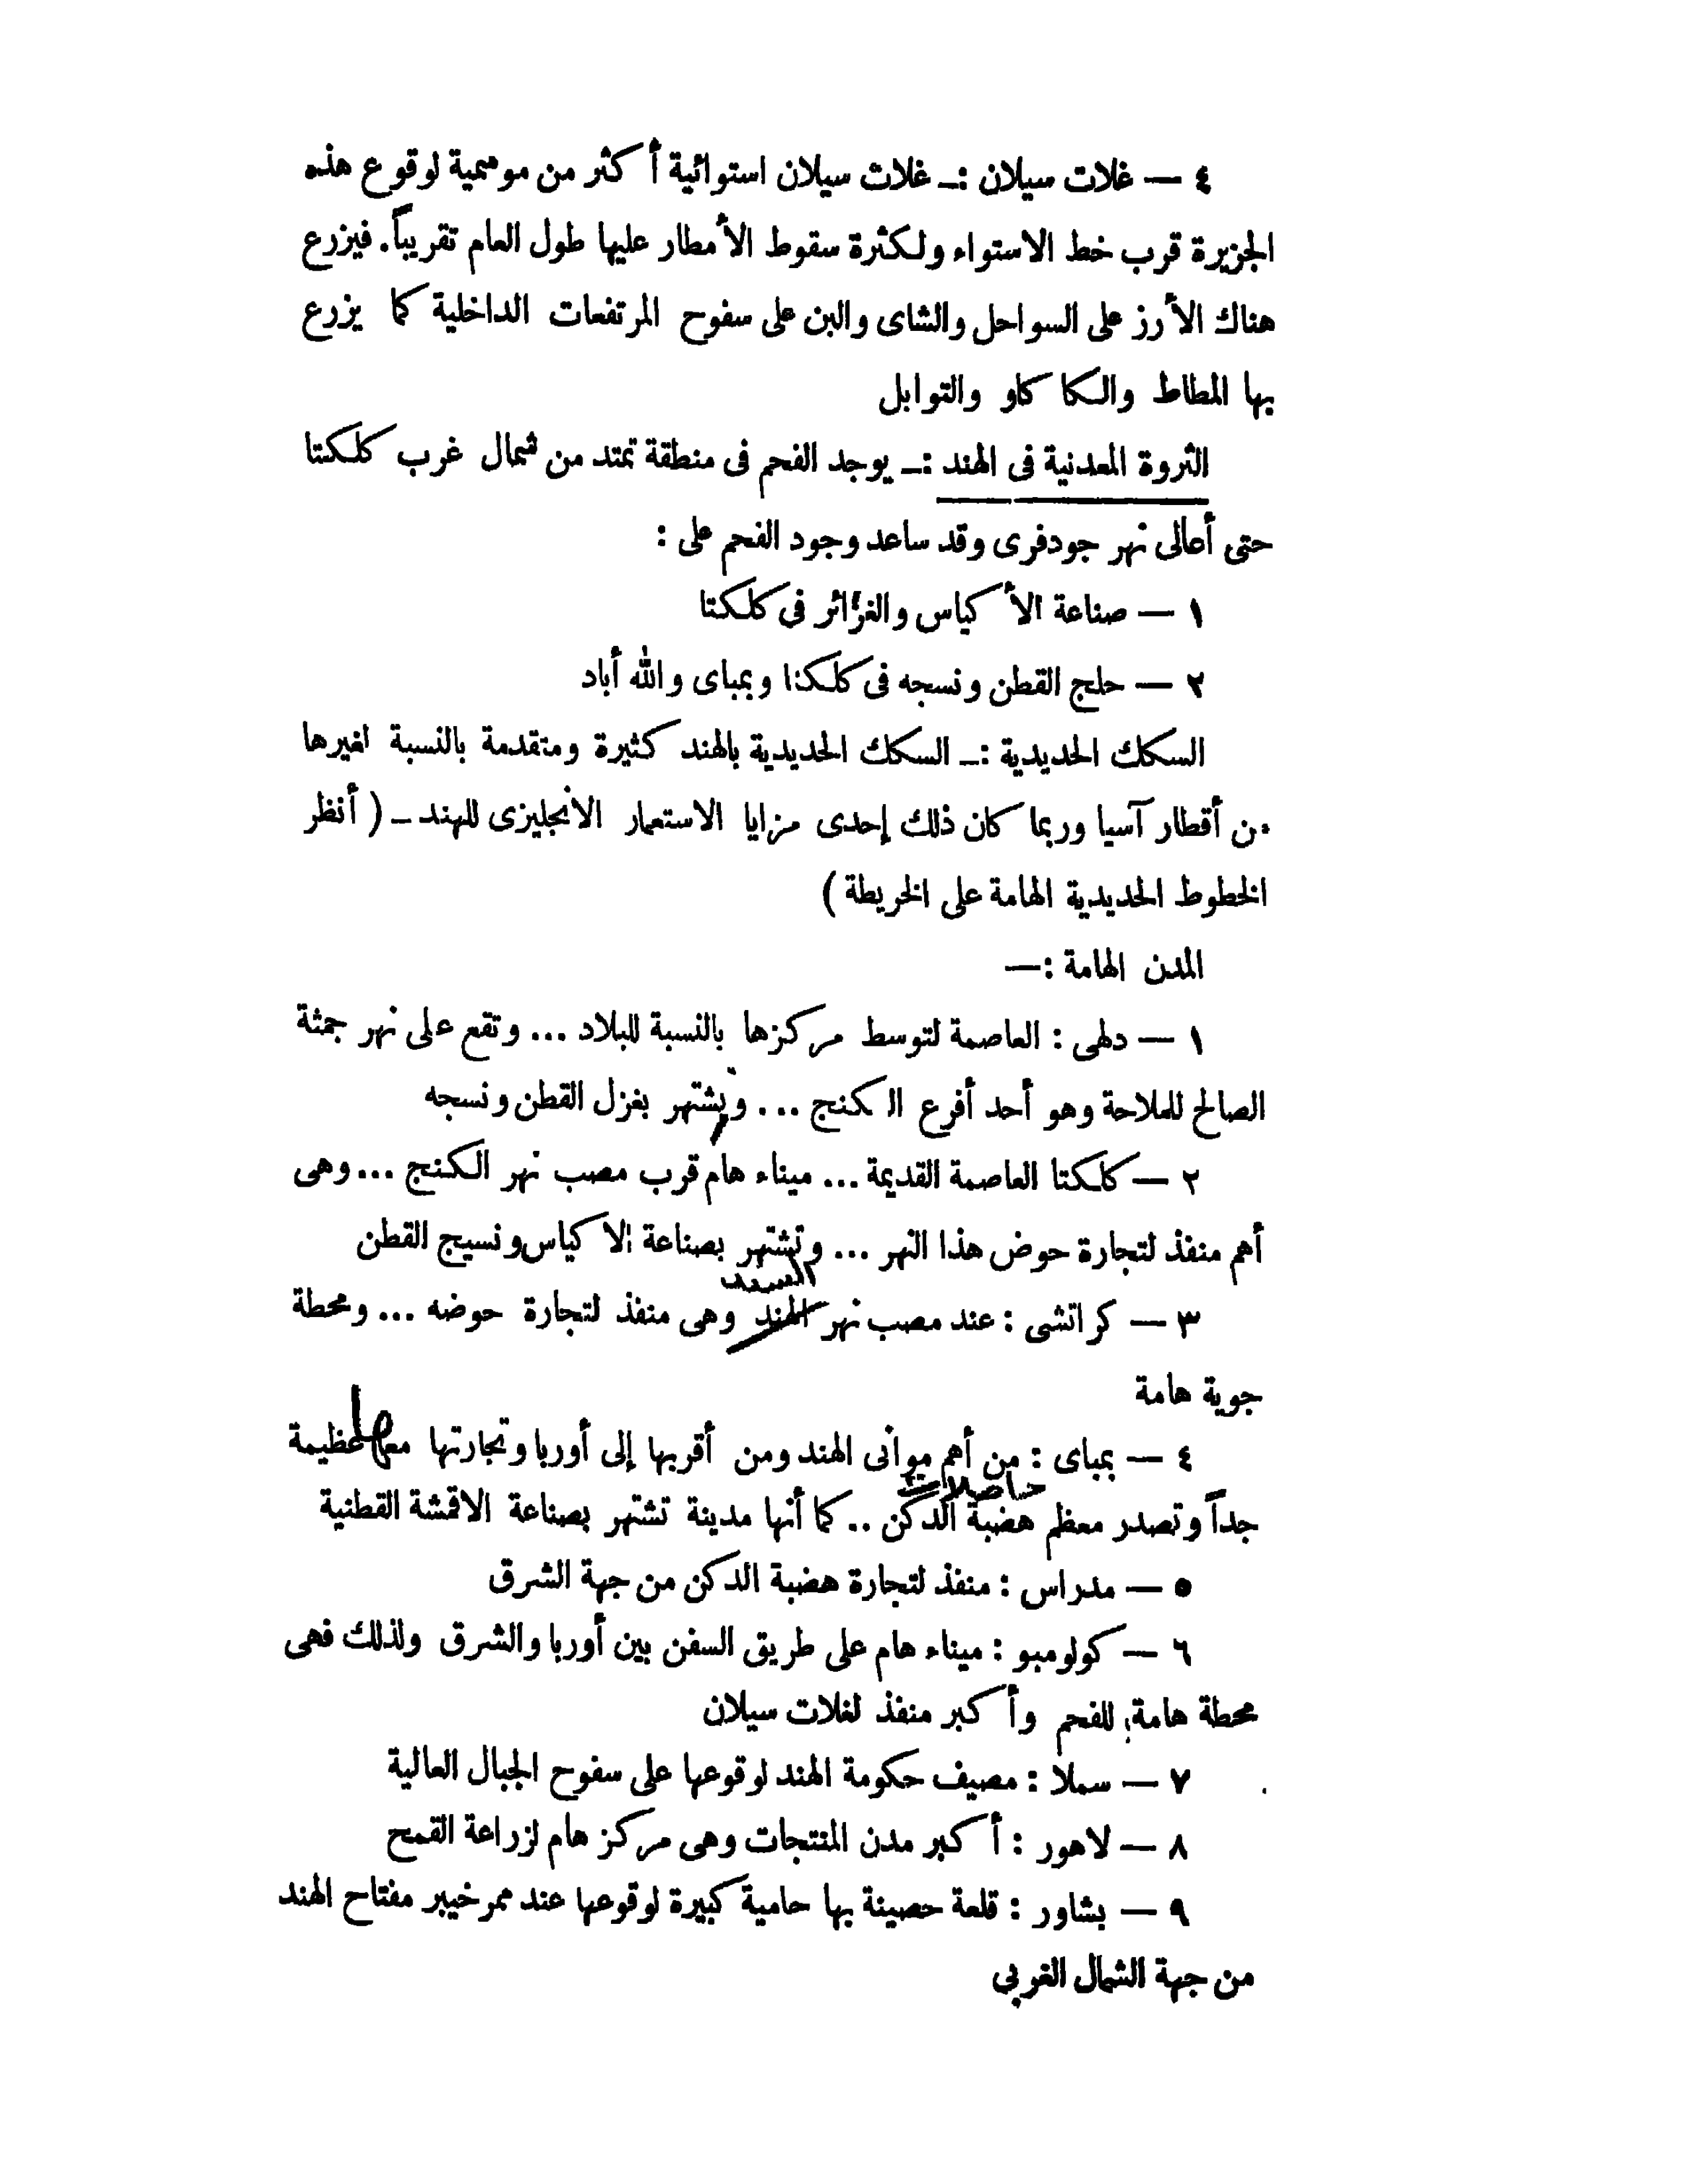 ٤ — غلات سيلان :ـ غلات سيلان استوائية أكثر من موسمية لوقوع هذه
الجزيرة قرب خط الاستواء ولكثرة سقوط الأمطار عليها طول العام تقريباً. فيزرع
هناك الأرز على السواحل والشاى والبن على سفوح المرتفعات الداخلية كما يزرع
بها المطاط والكاكاو والتوابل
الثروة المعدنية فى الهند :ـ يوجد الفحم فى منطقة تمتد من شمال غرب كلكتا
حتى أعالى نهر جودفرى وقد ساعد وجود الفحم على :
١ — صناعة الأكياس والغرائر فى كلكتا
٢ — حلج القطن ونسجه فى كلكتا وبمباى والله أباد
السكك الحديدية :ـ السكك الحديدية بالهند كثيرة ومتقدمة بالنسبة لغيرها
من أقطار آسيا وربما كان ذلك إحدى مزايا الاستعمار الانجليزى للهند ـ ( أنظر
الخطوط الحديدية الهامة على الخريطة )
المدن الهامة :—
١ — دلهى : العاصمة لتوسط مركزها بالنسبة للبلاد ... وتقع على نهر جمثة
الصالح للملاحة وهو أحد أفرع الكنج ... وتشتهر بغزل القطن ونسجه
٢ — كلكتا العاصمة القديمة ... ميناء هام قرب مصب نهر الكنج ... وهى
أهم منفذ لتجارة حوض هذا النهر ... وتشتهر بصناعة الاكياس ونسيج القطن
السند
٣ — كراتشى : عند مصب نهر الهند وهى منفذ لتجارة حوضه ... ومحطة
جوية هامة
٤ — بمباى : من أهم موانى الهند ومن أقربها إلى أوربا وتجارتها معها عظيمة
حاصلات
جداً وتصدر معظم هضبة الدكن .. كما أنها مدينة تشتهر بصناعة الاقمشة القطنية
٥ — مدراس : منفذ لتجارة هضبة الدكن من جهة الشرق
٦ — كولومبو : ميناء هام على طريق السفن بين أوربا والشرق ولذلك فهى
محطة هامة للفحم وأكبر منفذ لغلات سيلان
٧ — سملا : مصيف حكومة الهند لوقوعها على سفوح الجبال العالية
٨ — لاهور : أكبر مدن المنتجات وهى مركز هام لزراعة القمح
٩ — بشاور : قلعة حصينة بها حامية كبيرة لوقوعها عند ممر خيبر مفتاح الهند
من جهة الشمال الغربى